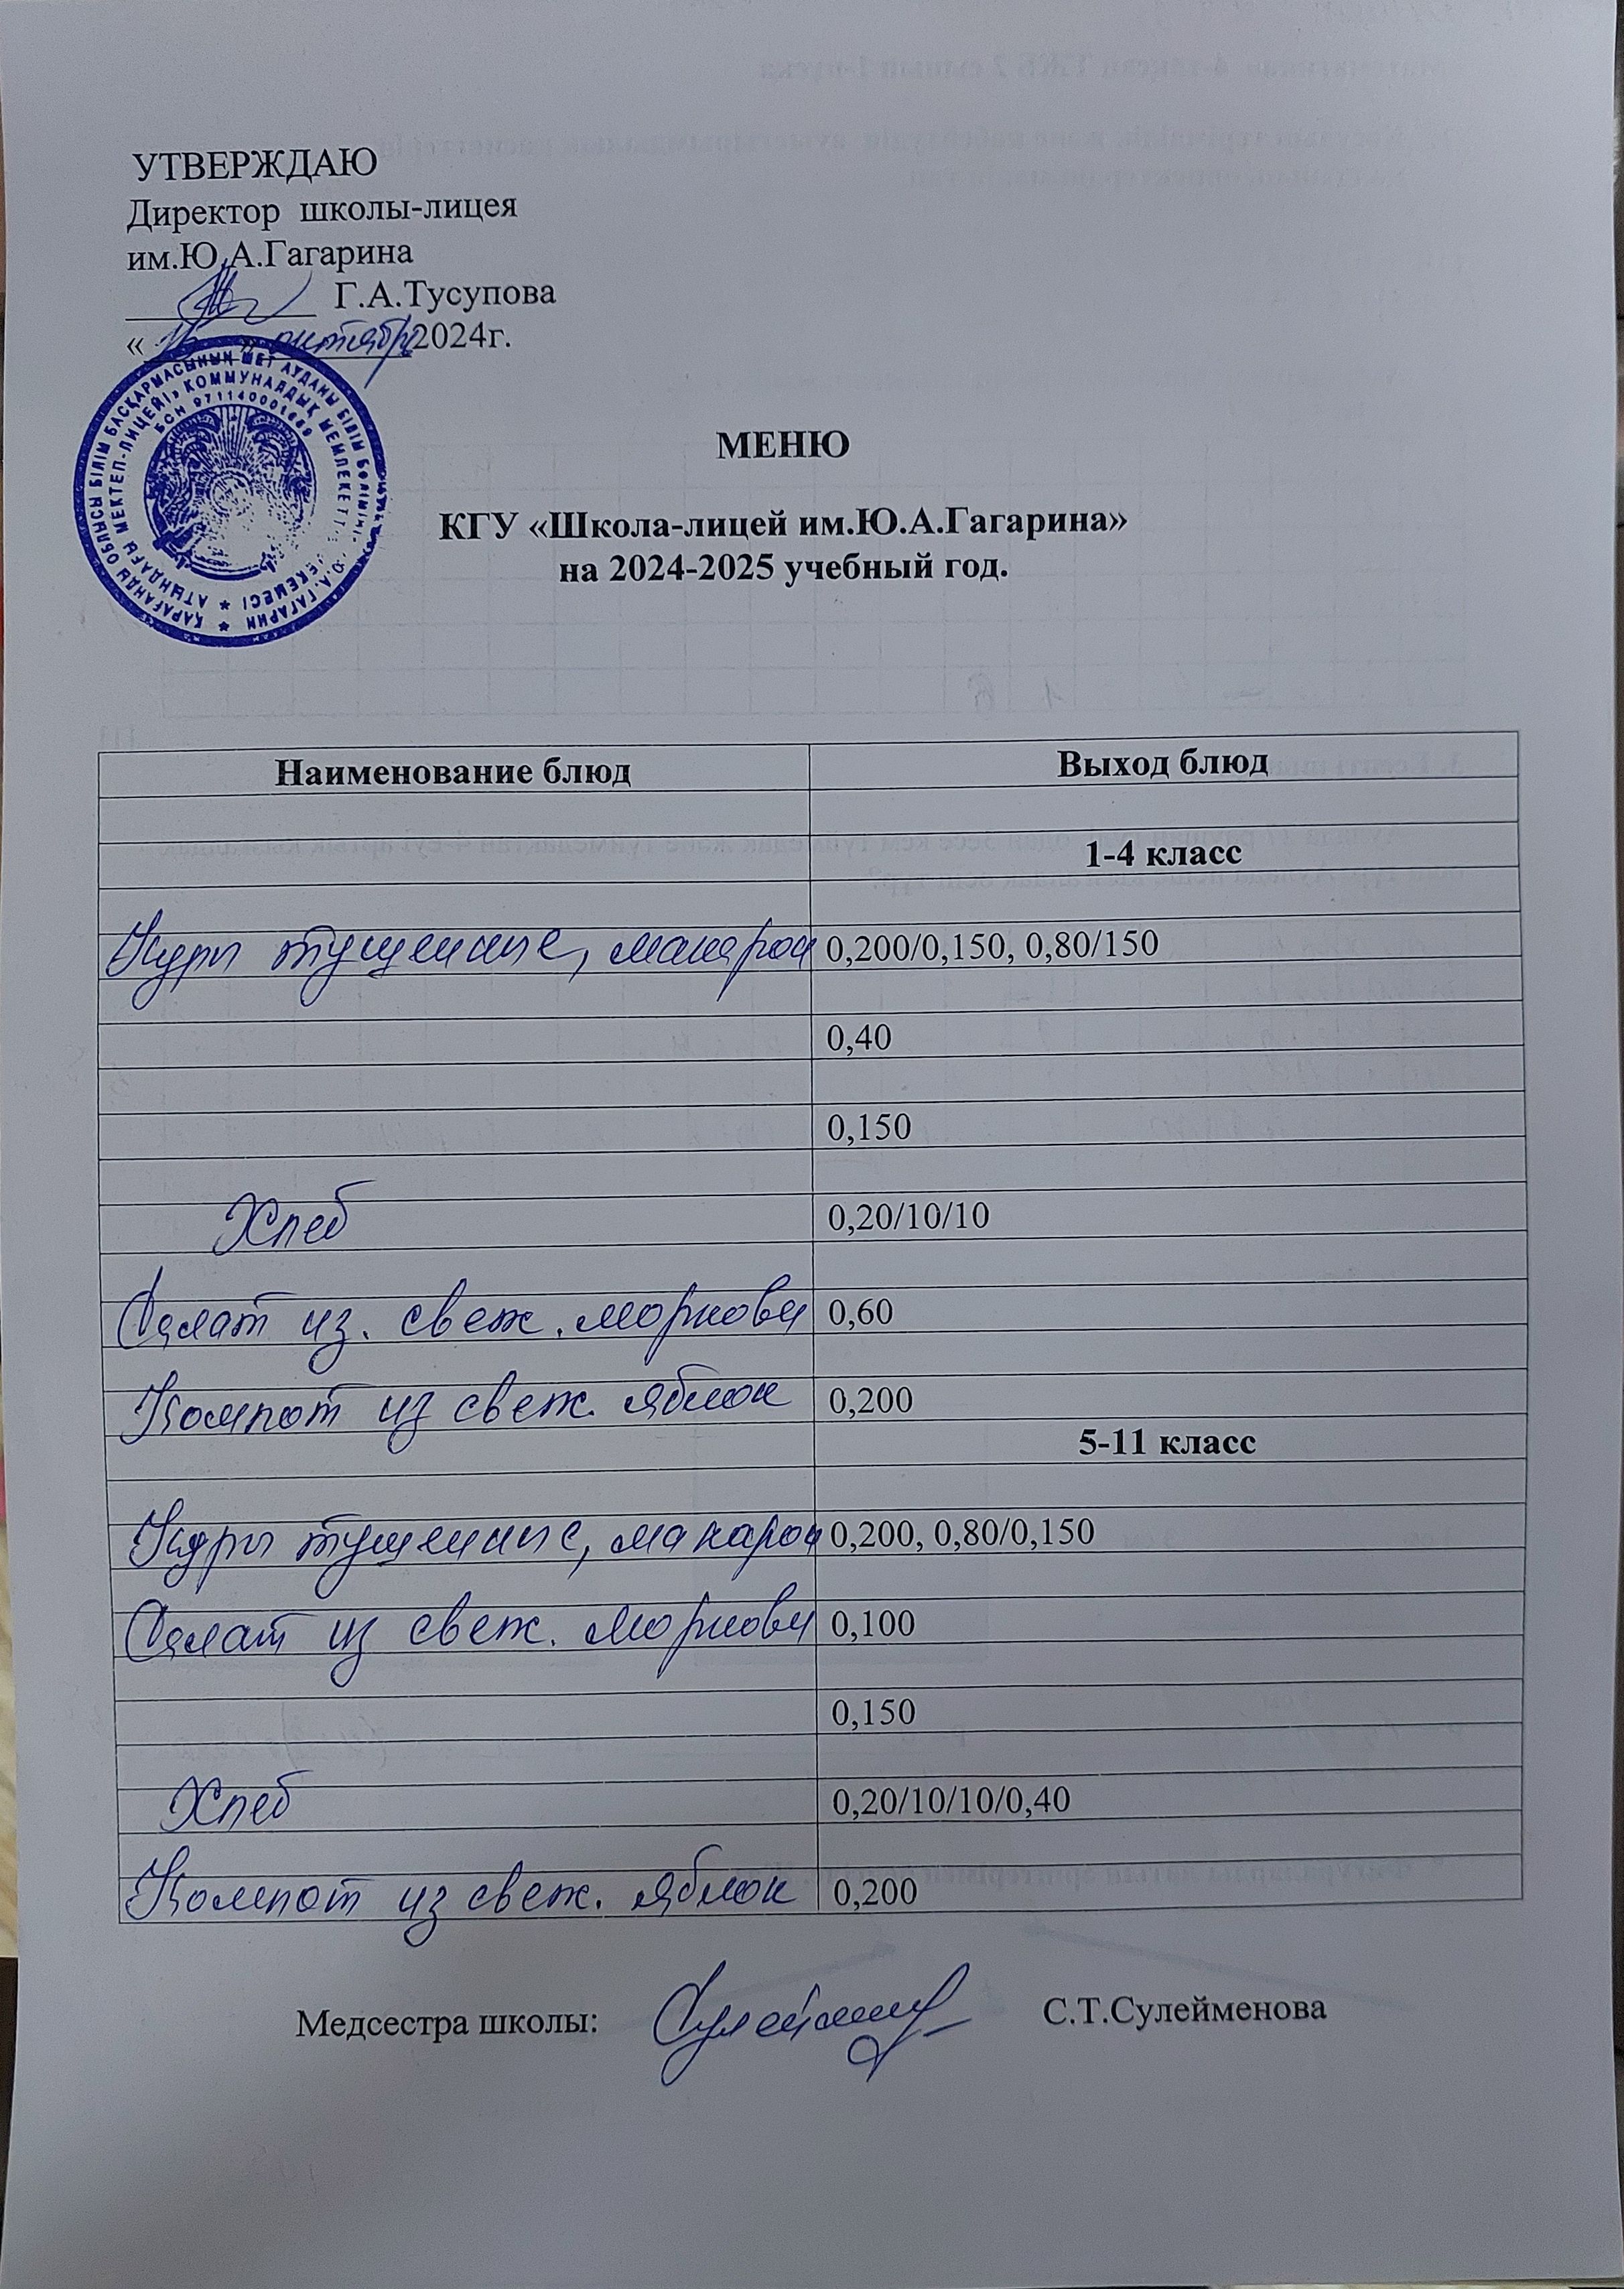 УТВЕРЖДАЮ
Директор школы-лицея
им.Ю.А.Гагарина
Г.А.Тусупова
«16» октября 2024г.
ҚАРАҒАНДЫ ОБЛЫСЫ БІЛІМ БАСҚАРМАСЫНЫҢ ШЕТ АУДАНЫ БІЛІМ БӨЛІМІНІҢ Ю.А.ГАГАРИН
АТЫНДАҒЫ МЕКТЕП-ЛИЦЕЙІ» КОММУНАЛДЫҚ МЕМЛЕКЕТТІК МЕКЕМЕСІ
БСН
МЕНЮ
КГУ «Школа-лицей им.Ю.А.Гагарина»
на 2024-2025 учебный год.
Наименование блюд Выход блюд
1-4 класс
Куры тушенные, макарон 0,200/0,150, 0,80/150
0,40
0,150
Хлеб 0,20/10/10
Салат из. свеж. моркови 0,60
Компот из свеж. яблок 0,200
5-11 класс
Куры тушенные, макарон 0,200, 0,80/0,150
Салат из свеж. моркови 0,100
0,150
Хлеб 0,20/10/10/0,40
Компот из свеж. яблок 0,200
Медсестра школы: С.Т.Сулейменова